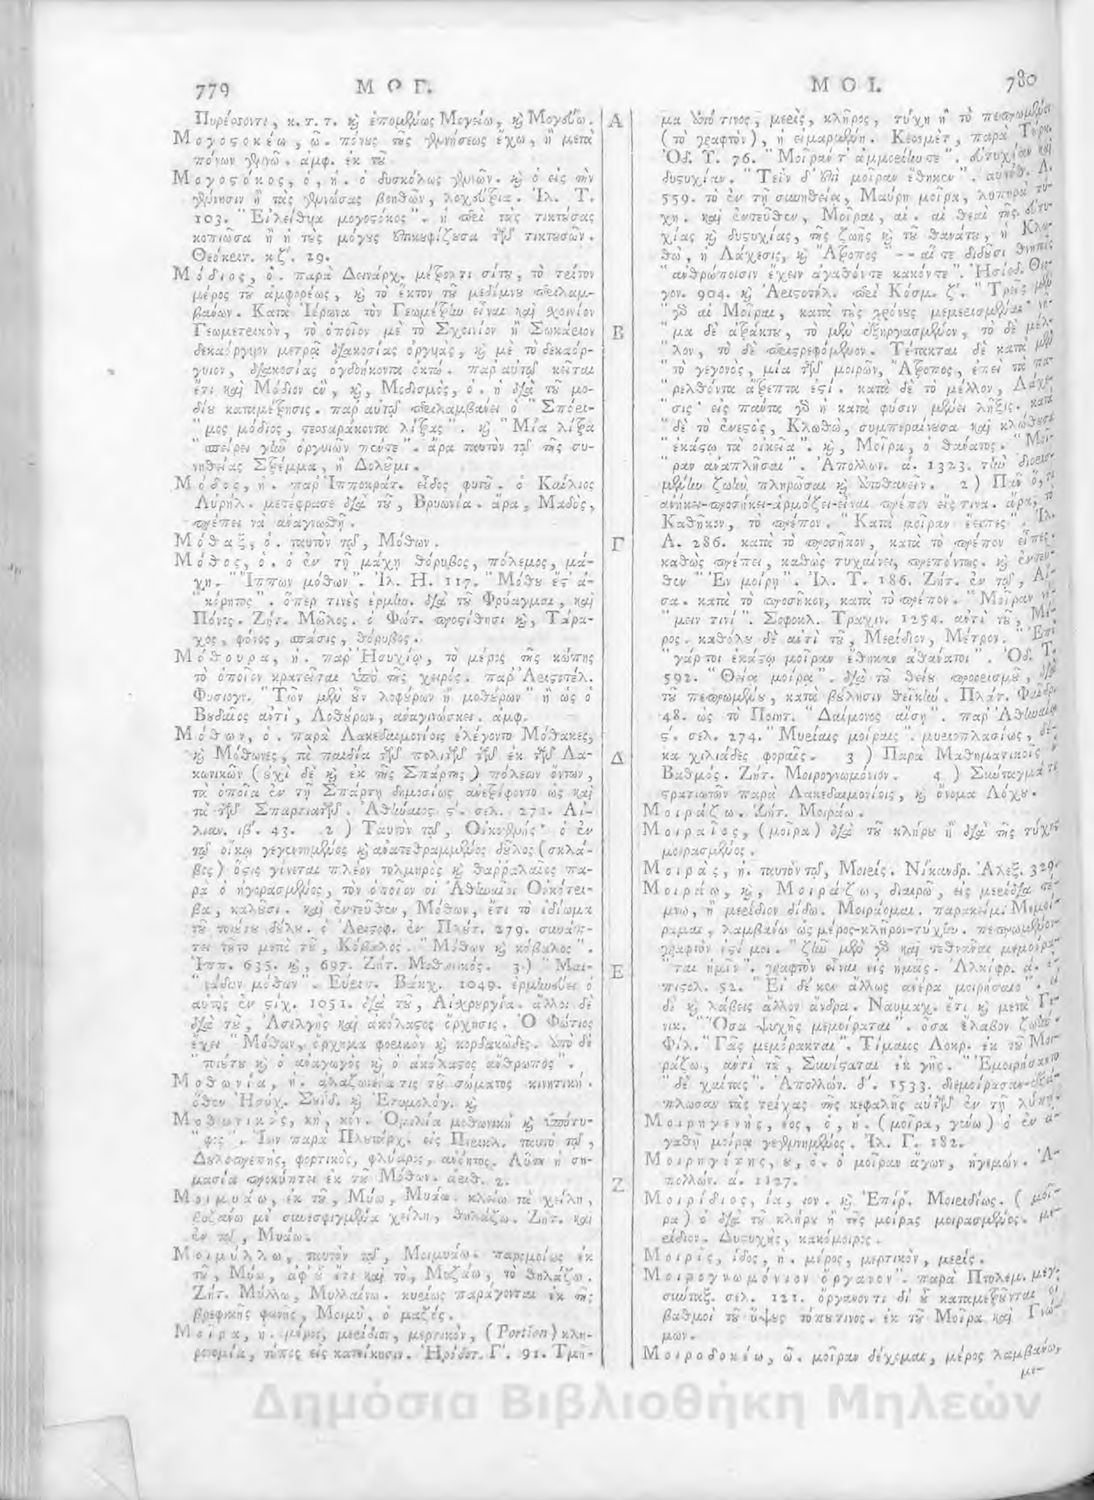 779 ΜΟΓ.
Πυρέσσοντι, κ. τ. τ. καὶ ἑπομένως Μογέω, καὶ Μογῶ.
Μογοςοκέω, ῶ. πόνους τῆς γεννήσεως ἔχω, ἢ μετὰ
πόνων γεννῶ. ἀμφ. ἐκ τοῦ
Μογοςόκος, ὁ, ἡ. ὁ δυσκόλως γεννῶν. καὶ ὁ εἰς τὴν
γέννησιν ἢ τὰς γεννώσας βοηθῶν, λοχεύτρια. Ἰλ. Τ.
103. "Εἰλείθυια μογοςόκος". ἡ περὶ τὰς τικτούσας
κοπιῶσα ἢ ἡ τοὺς μόγους ἐπικουφίζουσα τῶν τικτουσῶν.
Θεόκριτ. κζ΄. 29.
Μόδιος, ὁ. παρὰ Δεινάρχ. μέτρον τι σίτου, τὸ τρίτον
μέρος τοῦ ἀμφορέως, καὶ τὸ ἕκτον τοῦ μεδίμνου περιλαμ-
βάνων. Κατὰ Ἥρωνα τὸν Γεωμέτρην εἶναι καὶ σχοινίον
Γεωμετρικὸν, τὸ ὁποῖον μὲ τὸ Σχοινίον ἢ Σωκάριον
δεκαόργυιον μετρᾷ διακοσίας ὀργυιὰς, καὶ μὲ τὸ δεκαόρ-
γυιον, διακοσίας ὀγδοήκοντα ὀκτώ. παρ' αὐτῷ κεῖται
ἔτι καὶ Μόδιον ἓν, καὶ, Μοδισμὸς, ὁ. ἡ διὰ τοῦ μο-
δίου καταμέτρησις. παρ' αὐτῷ περιλαμβάνει ὁ "Σπόρι-
"μος μόδιος, τεσσαράκοντα λίτρας". καὶ "Μία λίτρα
"σπείρει γῆν ὀργυιῶν πέντε". ἄρα ταυτὸν τῷ τῆς συ-
νηθείας Στρέμμα, ἢ Δολύμι.
Μόδος, ἡ. παρ' Ἱπποκράτ. εἶδος φυτοῦ. ὁ Καίλιος
Αὐρήλ. μετέφρασε διὰ τοῦ, Βρυωνία. ἄρα, Μαδὸς,
πρέπει νὰ ἀναγνωσθῇ.
Μόθαξ, ὁ. ταυτὸν τῷ, Μόθων.
Μόθος, ὁ. ὁ ἐν τῇ μάχῃ θόρυβος, πόλεμος, μά-
χη. "Ἵππων μόθων". Ἰλ. Η. 117. "Μόθου ἔς' ἀ-
"κόρητος". ὅπερ τινὲς ἑρμην. διὰ τοῦ Φρύαγμα, καὶ
Πόνος. Ζήτ. Μῶλος. ὁ Φώτ. προςίθησι καὶ, Ταρα-
χὸς, φόνος, στάσις, θόρυβος.
Μόθουρα, ἡ. παρ' Ἡσυχίῳ, τὸ μέρος τῆς κώπης
τὸ ὁποῖον κρατεῖται ὑπὸ τῆς χειρός. παρ' Ἀριςοτέλ.
Φυσιογν. "Τῶν μὲν οὖν λοφύρων ἢ μοθύρων" ἢ ὡς ὁ
Βυδαῖος ἀντὶ, Λοθύρων, ἀναγινώσκει. ἀμφ.
Μόθων, ὁ. παρὰ Λακεδαιμονίοις ἐλέγοντο Μόθακες,
καὶ Μόθωνες, τὰ παιδία τῶν πολιτῶν τῶν ἐκ τῶν Λα-
κωνικῶν (οὐχὶ δὲ καὶ ἐκ τῆς Σπάρτης) πόλεων ὄντων,
τὰ ὁποῖα ἐν τῇ Σπάρτῃ δημοσίως ἀνετρέφοντο ὡς καὶ
τὰ τῶν Σπαρτιατῶν. Ἀθήναιος ς΄. σελ. 271. Αἰ-
λιαν. ιβ΄. 43. 2) Ταυτὸν τῷ, Οἰκοτριβής· ὁ ἐν
τῷ οἴκῳ γεγεννημένος καὶ ἀνατεθραμμένος δοῦλος (σκλά-
βος) ὅςις γίνεται πλέον τολμηρὸς καὶ θαρραλέος πα-
ρὰ ὁ ἠγορασμένος, τὸν ὁποῖον οἱ Ἀθηναῖοι Οἰκότρι-
βα, καλοῦσι. καὶ ἐντεῦθεν, Μόθων, ἔτι τὸ ἰδίωμα
τοῦ τοιούτου δούλου. ὁ Ἀριςοφ. ἐν Πλούτ. 279. συνάπ-
τει τοῦτο μετὰ τοῦ, Κόβαλος. "Μόθων καὶ κόβαλος".
Ἱππ. 635. καὶ, 697. Ζήτ. Μοθωνικός. 3.)
Εὐριπ. Βάκχ. 1049. ἑρμηνεύει ὁ
αὐτὸς ἐν ςίχ. 1051. διὰ τοῦ, Αἰσχρουργία. ἄλλοι δὲ
διὰ τοῦ, Ἀσελγὴς καὶ ἀκόλαςος ὄρχησις. Ὁ Φώτιος
ἔχει "Μόθων, ὄρχημα φορτικὸν καὶ κορδακῶδες.
"καὶ ὁ ἀνάγωγος καὶ ὁ ἀκόλαςος ἄνθρωπος".
Μοθωνία, ἡ. ἀλαζονεία τις τοῦ σώματος κινητική.
ὅθεν Ἡσύχ. Σουΐδ. καὶ Ἐτυμολόγ. καὶ
Μοθωνικὸς, κὴ, κόν. Ὁμιλία μοθωνικὴ καὶ ὑπότυ-
"φος". Ἴων παρὰ Πλουτάρχ. εἰς Περικλ. ταυτὸ τῷ,
Δουλοπρεπὴς, φορτικὸς, φλύαρος, ἀνόητος. Αὕτη ἡ ση-
μασία προκύπτει ἐκ τοῦ Μόθων. ἀριθ. 2.
Μοιμυάω, ἐκ τοῦ, Μύω, Μυάω. κλείω τὰ χείλη,
βυζάνω μὲ συνεσφιγμένα χείλη, θηλάζω. Ζήτ. καὶ
ἐν τῷ, Μυάω.
Μοιμύλλω, ταυτὸν τῷ, Μοιμυάω. παρομοίως ἐκ
τοῦ, Μύω, ἀφ' οὗ ἔτι καὶ τὸ, Μυζάω, τὸ θηλάζω.
Ζήτ. Μύλλω, Μυλλαίνω. κυρίως παράγονται ἐκ τῆς
βρεφικῆς φωνῆς, Μοιμῦ, ὁ μαζός.
Μοῖρα, ἡ. μέρος, μερίδιον, μερτικὸν, (Portion) κλη-
ρονομία, τόπος εἰς κατοίκησιν. Ἡρόδοτ. Γ΄. 91. Τμῆ-
Α
Β
Γ
Δ
Ε
Ζ
ΜΟΙ. 780
μα ἀπό τινος, μερὶς, κλῆρος, τύχη ἢ τὸ πεπρωμένον
(τὸ γραφτὸν), ἡ εἱμαρμένη. Κεσμέτ, παρὰ Τούρκ.
Ὀδ. Υ. 76. "Μοῖράν τ' ἀμμορίην τε". εὐτυχίαν καὶ
δυςυχίαν. "Τεῒν δ' ἐπὶ μοῖραν ἔθηκεν". αὐτόθ. Λ.
559. τὸ ἐν τῇ συνηθείᾳ, Μαύρη μοῖρα, λυπηρὰ τύ-
χη. καὶ ἐντεῦθεν, Μοῖραι, αἱ. αἱ θεαὶ τῆς εὐτυ-
χίας καὶ δυςυχίας, τῆς ζωῆς καὶ τοῦ θανάτου, ἡ Κλω-
θὼ, ἡ Λάχεσις, καὶ "Ἄτροπος" -- αἵ τε διδοῦσι θνητοῖς
"ἀνθρώποισιν ἔχειν ἀγαθόν τε κακόν τε". Ἡσίοδ. Θεο-
γον. 904. καὶ Ἀριςοτέλ. περὶ Κόσμ. ζ΄. "Τρεῖς μὲν
"γὰρ αἱ Μοῖραι, κατὰ τοὺς χρόνους μεμερισμέναι· νῆ-
"μα δὲ ἀτράκτου, τὸ μὲν ἐξηργασμένον, τὸ δὲ μέλ-
"λον, τὸ δὲ περιςρεφόμενον. Τέτακται δὲ κατὰ μὲν
"τὸ γεγονὸς, μία τῶν μοιρῶν, Ἄτροπος, ἐπεὶ τὰ πα-
"ρελθόντα ἄτρεπτά ἐςι. κατὰ δὲ τὸ μέλλον, Λάχε-
"σις· εἰς πάντα γὰρ ἡ κατὰ φύσιν μένει λῆξις. κατὰ
"δὲ τὸ ἐνεςὸς, Κλωθὼ, συμπεραίνουσα καὶ κλώθουσα
"ἑκάςῳ τὰ οἰκεῖα". καὶ, Μοῖρα, ὁ θάνατος. "Μοῖ-
"ραν ἀναπλῆσαι". Ἀπολλων. ά. 1323. τὴν διωρισ-
μένην ζωὴν πληρῶσαι καὶ ἀποθανεῖν. 2) Πᾶν ὅ,τι
ἀνήκει-προσήκει-ἁρμόζει-εἶναι πρέπον εἴς τινα. ἄρα, τὸ
Καθῆκον, τὸ πρέπον. "Κατὰ μοῖραν ἔειπες". Ἰλ.
Α. 286. κατὰ τὸ προσῆκον, κατὰ τὸ πρέπον εἶπες.
καθὼς πρέπει, καθὼς τυχαίνει, πρεπόντως. καὶ ἐντεῦ-
θεν "Ἐν μοίρῃ". Ἰλ. Τ. 186. Ζήτ. ἐν τῷ, Αἶ-
σα. κατὰ τὸ προσῆκον, κατὰ τὸ πρέπον. "Μοῖραν νέ-
"μειν τινί". Σοφοκλ. Τραχιν. 1254. ἀντὶ τοῦ, Μέ-
ρος. καθόλου δὲ ἀντὶ τοῦ, Μερίδιον, Μέτρον. "Ἐπὶ
"γάρ τοι ἑκάςῳ μοῖραν ἔθηκαν ἀθάνατοι". Ὀδ. Τ.
592. "Θεία μοῖρα". διὰ τοῦ θείου προορισμοῦ, διὰ
τοῦ πεπρωμένου, κατὰ βούλησιν θεϊκήν. Πλάτ. Φαίδρ.
48. ὡς τὸ Ποιητ. "Δαίμονος αἴσῃ". παρ' Ἀθηναίῳ
ς΄. σελ. 274. "Μυρίαις μοίραις". μυριοπλασίως, δέ-
κα χιλιάδες φοραῖς. 3) Παρὰ Μαθηματικοῖς
Βαθμός. Ζήτ. Μοιρογνωμόνιον. 4) Σύνταγμά τι
ςρατιωτῶν παρὰ Λακεδαιμονίοις, καὶ ὄνομα Λόχου.
Μοιράζω. Ζήτ. Μοιράω.
Μοιραῖος, (μοῖρα) διὰ τοῦ κλήρου ἢ διὰ τῆς τύχης
μοιρασμένος.
Μοιρὰς, ἡ. ταυτὸν τῷ, Μοιρίς. Νίκανδρ. Ἀλεξ. 329.
Μοιράω, καὶ, Μοιράζω, διαιρῶ, εἰς μερίδια τέ-
μνω, ἢ μερίδιον δίδω. Μοιράομαι. παρακείμ. Μεμοί-
ραμαι, λαμβάνω ὡς μέρος-κλῆρον-τύχην. πεπρωμένον-
γραφτόν ἐςί μοι. "ζῆν μὲν γὰρ καὶ τεθνάναι μεμοίρα-
"ται ἡμῖν". γραφτὸν εἶναι εἰς ἡμᾶς. Ἀλκίφρ. ά. ἐ-
πιςολ. 52. "Εἰ δέ κεν ἄλλως ἀνέρα μοιρήσαιο". εἰ
δὲ καὶ λάβεις ἄλλον ἄνδρα. Ναυμαχ. ἔτι καὶ μετὰ Γε-
νικ. "Ὅσα ψυχῆς μεμοίραται". ὅσα ἔλαβον ζωήν.
Φιλ. "Γᾶς μεμόρακται". Τίμαιος Λοκρ. ἐκ τοῦ Μοι-
ράζω, ἀντὶ τοῦ, Συνίςαται ἐκ γῆς. "Ἐμοιρήσαντο
"δὲ χαίτας". Ἀπολλών. δ΄. 1533. διεμοίρασαν-
πλωσαν τὰς τρίχας τῆς κεφαλῆς αὐτῶν ἐν τῇ λύπῃ.
Μοιρηγενὴς, έος, ὁ, ἡ. (μοῖρα, γένω) ὁ ἐν ἀ-
γαθῇ μοίρᾳ γεγεννημένος. Ἰλ. Γ. 182.
Μοιρηγέτης, ου, ὁ. ὁ μοῖραν ἄγων, ἡγεμών. Ἀ-
πολλων. ά. 1127.
Μοιρίδιος, ία, ιον. καὶ Ἐπίῤ. Μοιριδίως. (μοῖ-
ρα) ὁ διὰ τοῦ κλήρου ἢ τῆς μοίρας μοιρασμένος. με-
ρίδιον. Δυςυχὴς, κακόμοιρος.
Μοιρὶς, ίδος, ἡ. μέρος, μερτικὸν, μερίς.
Μοιρογνωμόνιον ὄργανον". παρὰ Πτολεμ. μεγ.
συνταξ. σελ. 121. ὄργανόν τι δι' οὗ καταμετροῦνται οἱ
βαθμοὶ τοῦ ὕψους τόπου τινος. ἐκ τοῦ Μοῖρα καὶ Γνώ-
μων.
Μοιροδοκέω, ῶ. μοῖραν δέχομαι, μέρος λαμβάνω,
με-
Δημόσια Βιβλιοθήκη Μηλεών